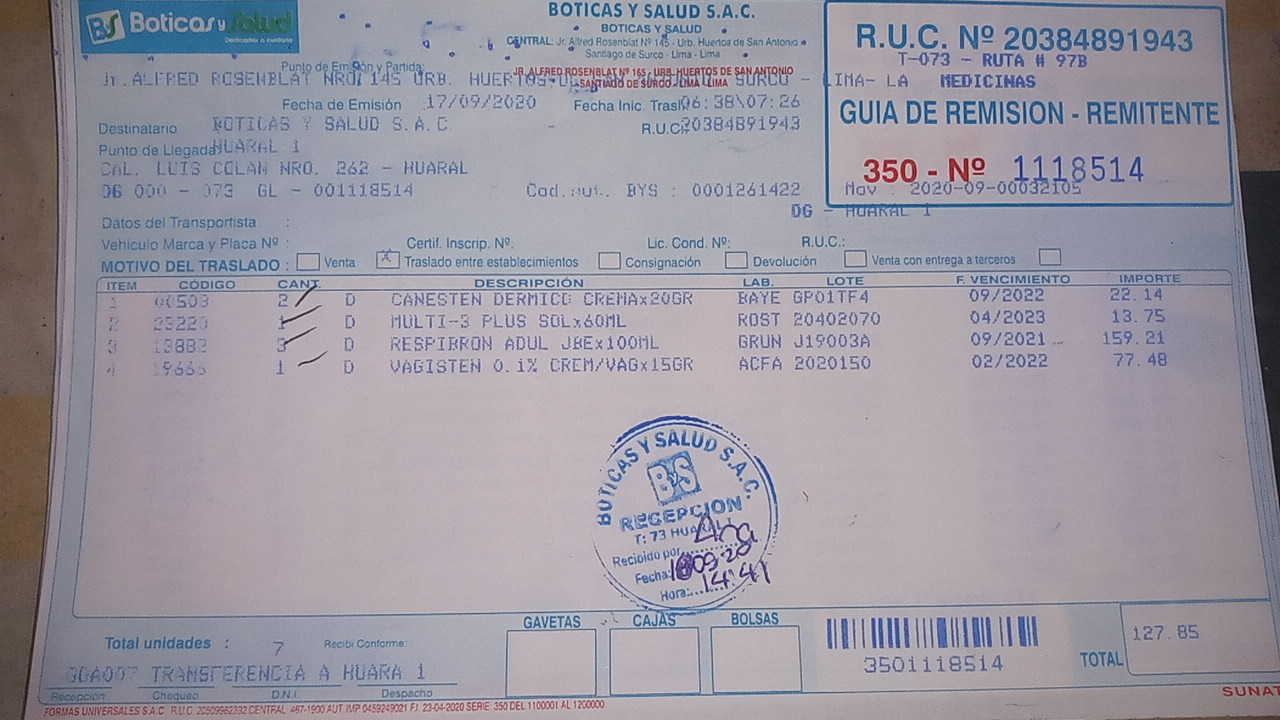 BS Boticas y Salud
Dedicados a cuidarte
BOTICAS Y SALUD S.A.C.
BOTICAS Y SALUD
CENTRAL: Jr. Alfred Rosenblat Nº 145 - Urb. Huertos de San Antonio
Santiago de Surco - Lima - Lima
JR. ALFRED ROSENBLAT Nº 165 - URB. HUERTOS DE SAN ANTONIO
SANTIAGO DE SURCO - LIMA - LIMA
R.U.C. Nº 20384891943
T-073 - RUTA # 97B
MEDICINAS
GUIA DE REMISION - REMITENTE
350 - Nº 1118514
Mov : 2020-09-00032105
DG - HUARAL 1
Punto de Emisión y Partida:
Jr. ALFRED ROSENBLAT NRO. 145 URB. HUERTOS SURCO - LIMA- LA
Fecha de Emisión 17/09/2020 Fecha Inic. Trasl 06:38\07:26
Destinatario BOTICAS Y SALUD S.A.C. R.U.C. 20384891943
Punto de Llegada HUARAL 1
CAL. LUIS COLAN NRO. 262 - HUARAL
DG 000 - 073 GL - 001118514 Cod.aut. BYS : 0001261422
Datos del Transportista :
Vehículo Marca y Placa Nº : Certif. Inscrip. Nº: Lic. Cond. Nº: R.U.C.:
MOTIVO DEL TRASLADO : Venta X Traslado entre establecimientos Consignación Devolución Venta con entrega a terceros
ITEM CÓDIGO CANT. DESCRIPCIÓN LAB. LOTE F. VENCIMIENTO IMPORTE
1 00503 2 D CANESTEN DERMICO CREMAx20GR BAYE GP01TF4 09/2022 22.14
2 23220 1 D MULTI-3 PLUS SOLx60ML ROST 20402070 04/2023 13.75
3 13883 3 D RESPIBRON ADUL JBEx100ML GRUN J19003A 09/2021 159.21
4 19666 1 D VAGISTEN 0.1% CREM/VAGx15GR ACFA 2020150 02/2022 77.48
BOTICAS Y SALUD S.A.C.
BYS
RECEPCION
T: 73 HUARAL 1
Recibido por
Fecha: 09-20
Hora: 14:41
Total unidades : 7 Recibi Conforme:
GAVETAS CAJAS BOLSAS
3501118514
TOTAL 127.85
TRANSFERENCIA A HUARA 1
Recepción Chequeo D.N.I. Despacho
SUNAT
FORMAS UNIVERSALES S.A.C. R.U.C. 20509982232 CENTRAL 467-1900 AUT. IMP. 0459249021 FJ. 23-04-2020 SERIE 350 DEL 1100001 AL 1200000